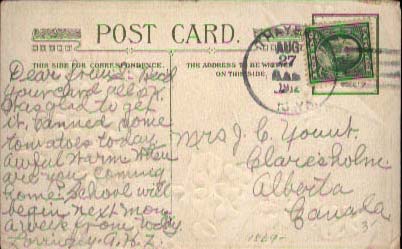 POST CARD.
THIS SIDE FOR CORRESPONDENCE.
THE ADDRESS TO BE WRITTEN
ON THIS SIDE.
AUG
27
1912
N.Y.
Dear friend: Recd
your card all O.K.
was glad to get
it, canned some
tomatoes today
awful warm When
are you coming
home: School will
begin next mon
a week from today
Mrs J. C. Yount.
Claresholm
Alberta
Canada